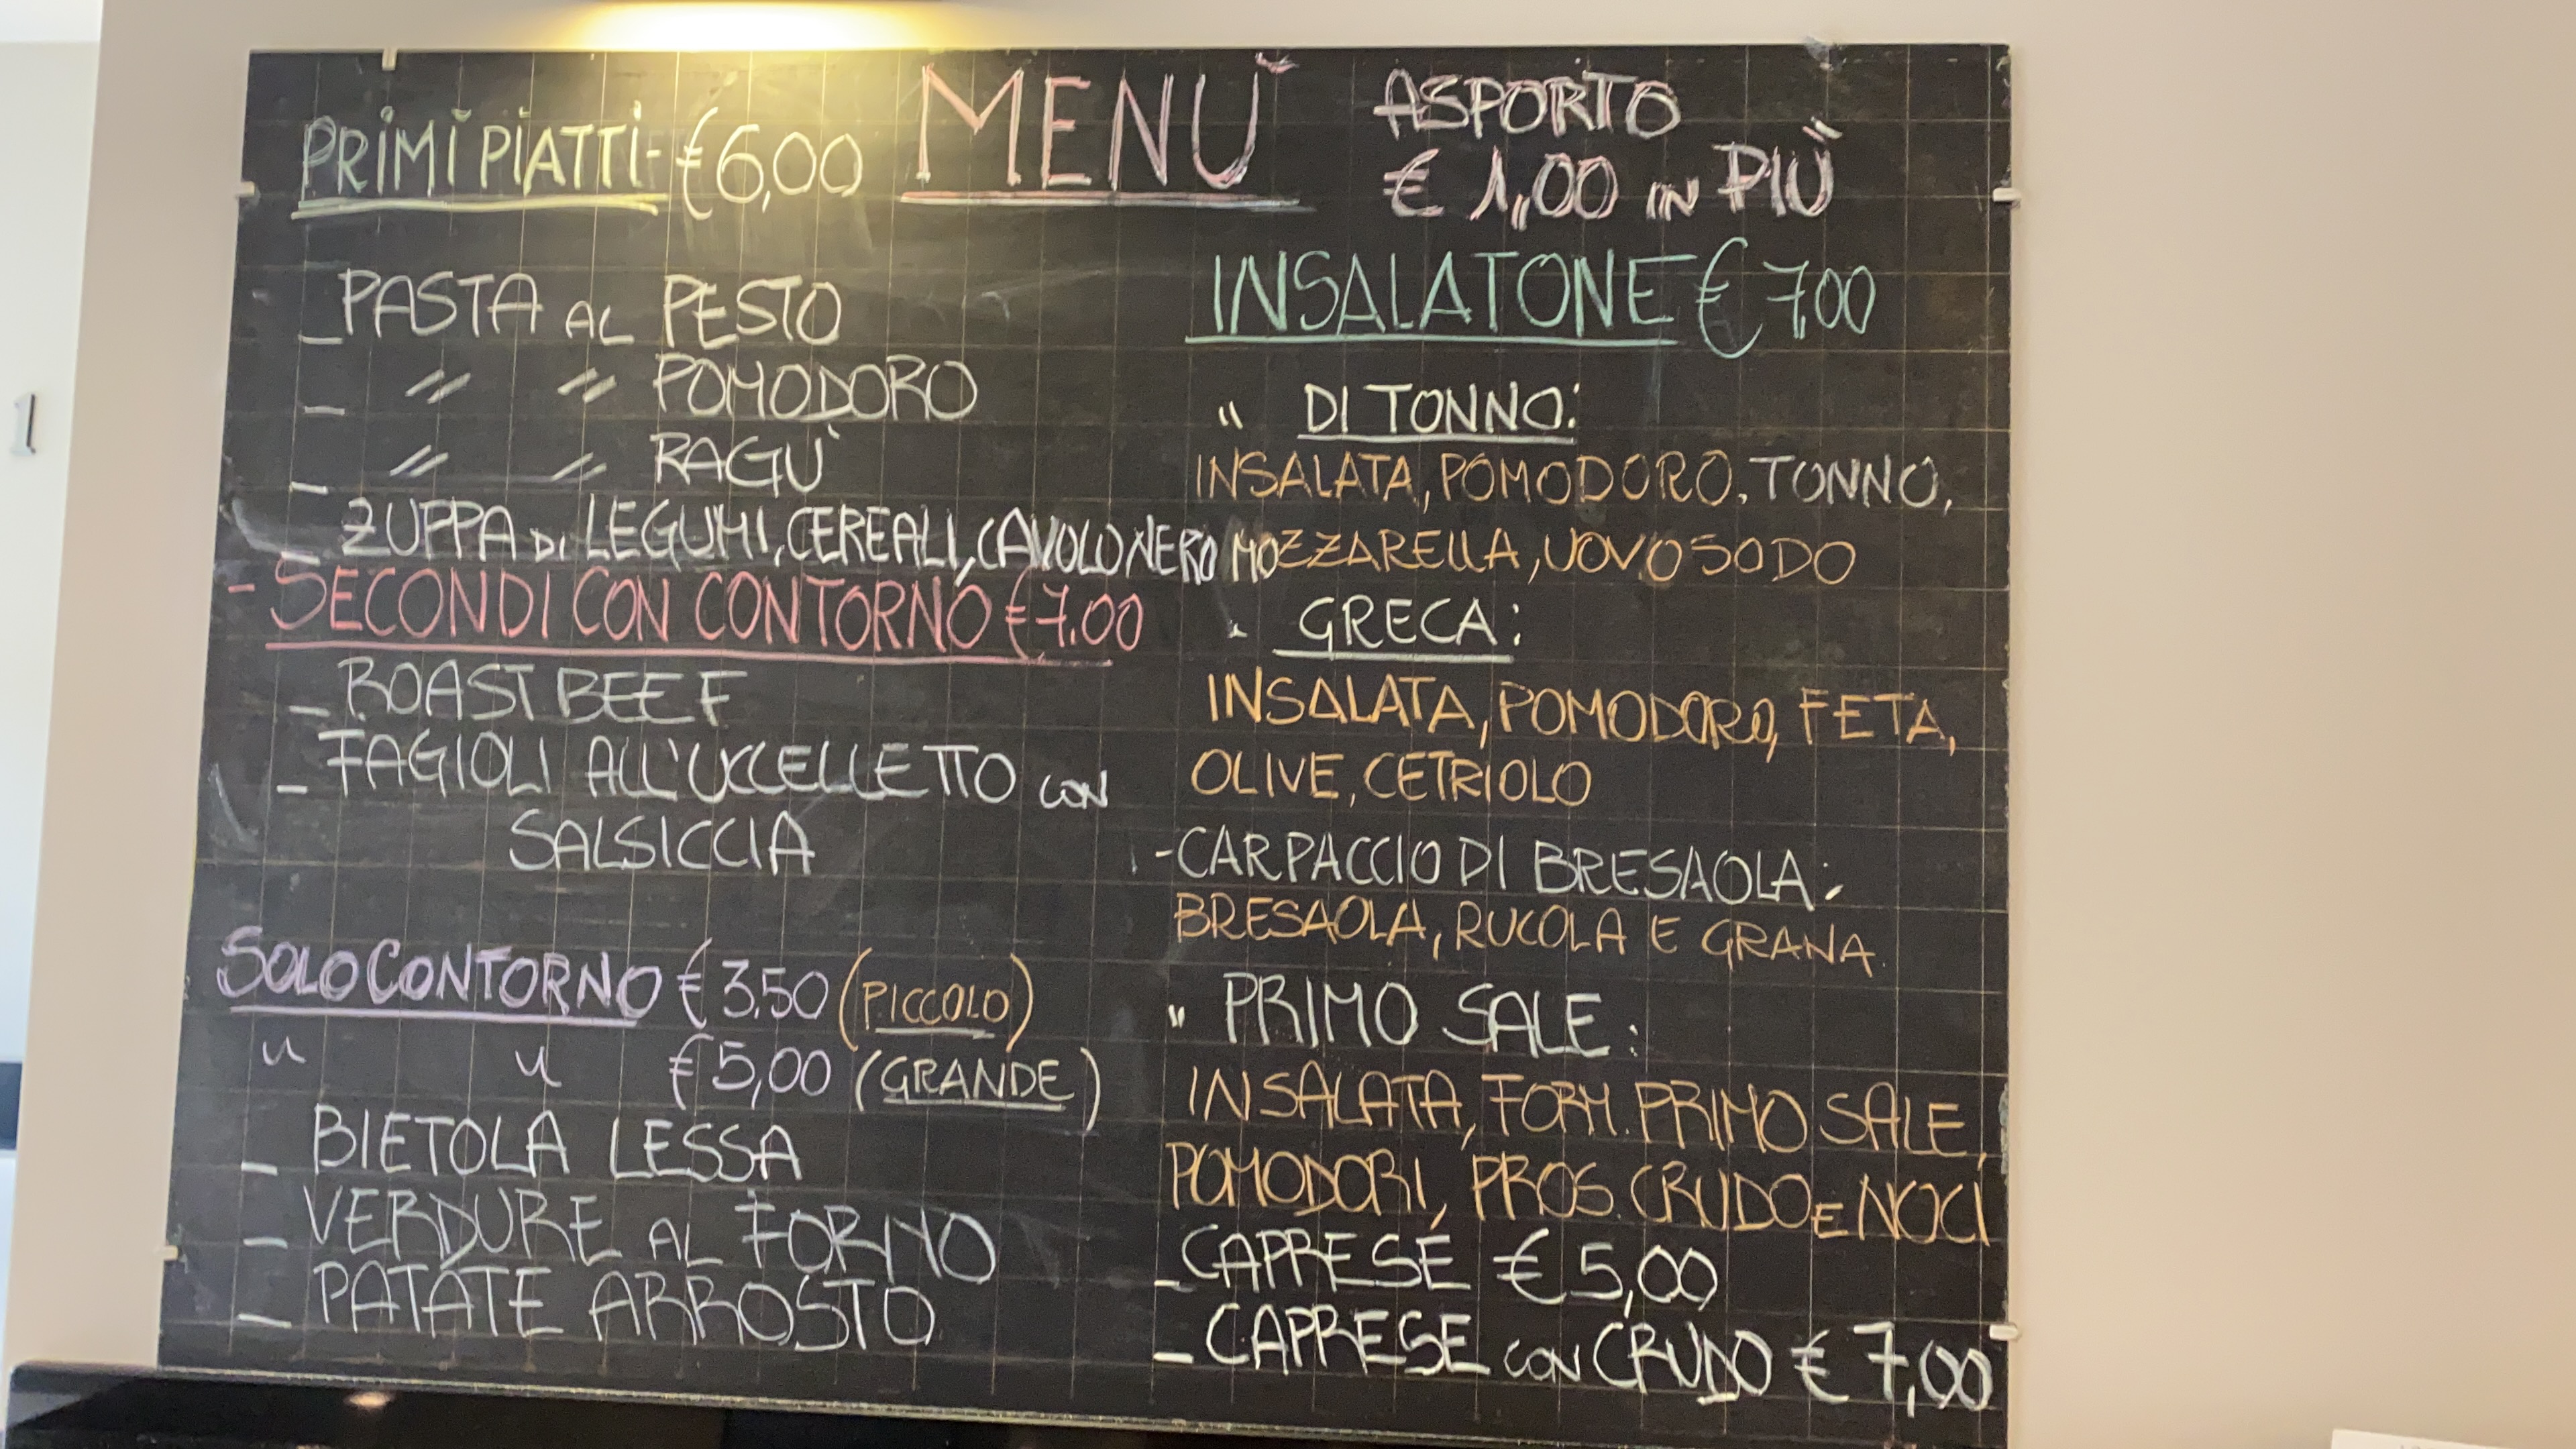 MENÙ
PRIMI PIATTI - € 6,00
_ PASTA AL PESTO
_ " " POMODORO
_ " " RAGÙ
_ ZUPPA DI LEGUMI, CEREALI, CAVOLO NERO
- SECONDI CON CONTORNO € 7.00
_ ROAST BEEF
_ FAGIOLI ALL'UCCELLETTO CON
SALSICCIA
SOLO CONTORNO € 3,50 (PICCOLO)
" " € 5,00 (GRANDE)
_ BIETOLA LESSA
_ VERDURE AL FORNO
_ PATATE ARROSTO
ASPORTO
€ 1,00 IN PIÙ
INSALATONE € 7,00
" DI TONNO:
INSALATA, POMODORO, TONNO,
MOZZARELLA, UOVO SODO
" GRECA:
INSALATA, POMODORO, FETA,
OLIVE, CETRIOLO
- CARPACCIO DI BRESAOLA:
BRESAOLA, RUCOLA E GRANA
" PRIMO SALE:
INSALATA, FORM. PRIMO SALE,
POMODORI, PROS. CRUDO E NOCI
_ CAPRESE € 5,00
_ CAPRESE CON CRUDO € 7,00
1